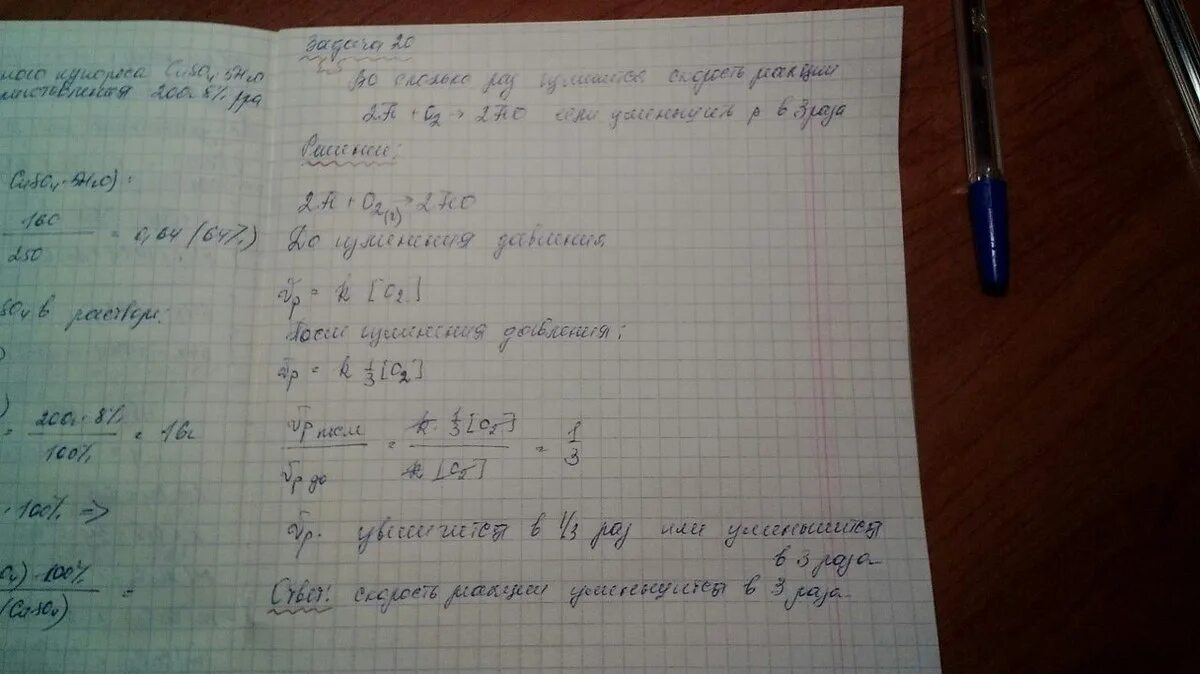 ного купороса CuSO4 5H2O
200г 8% р-ра
CuSO4·5H2O):
160
250
= 0,64 (64%)
SO4 в растворе:
= 200г·8%
100%
= 16г
·100% =>
)·100%
(CuSO4)
=
Задача 20
Во сколько раз изменится скорость реакции
+ O2 → если уменьшить p в 3 раза
Решение:
+ O2(г) →
До изменения давления
Vр = k [O2]
После изменения давления:
Vр = k 1/3 [O2]
Vр после
Vр до
= k · 1/3 [O2]
k [O2]
= 1
3
Vр. увеличится в 1/3 раз или уменьшится
в 3 раза
Ответ: скорость реакции уменьшится в 3 раза.